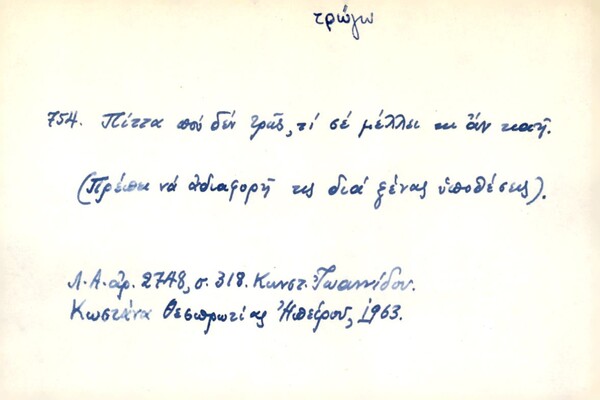 τρώγω
754. Πίττα πού δέν τρῶς, τί σέ μέλλει κι ἄν καῇ.
(Πρέπει νά ἀδιαφορῇ τις διά ξένας ὑποθέσεις).
Λ.Α. ἀρ. 2748, σ. 318. Κωνστ. Ἰωαννίδου.
Κωστάνα Θεσπρωτίας Ἠπείρου, 1963.